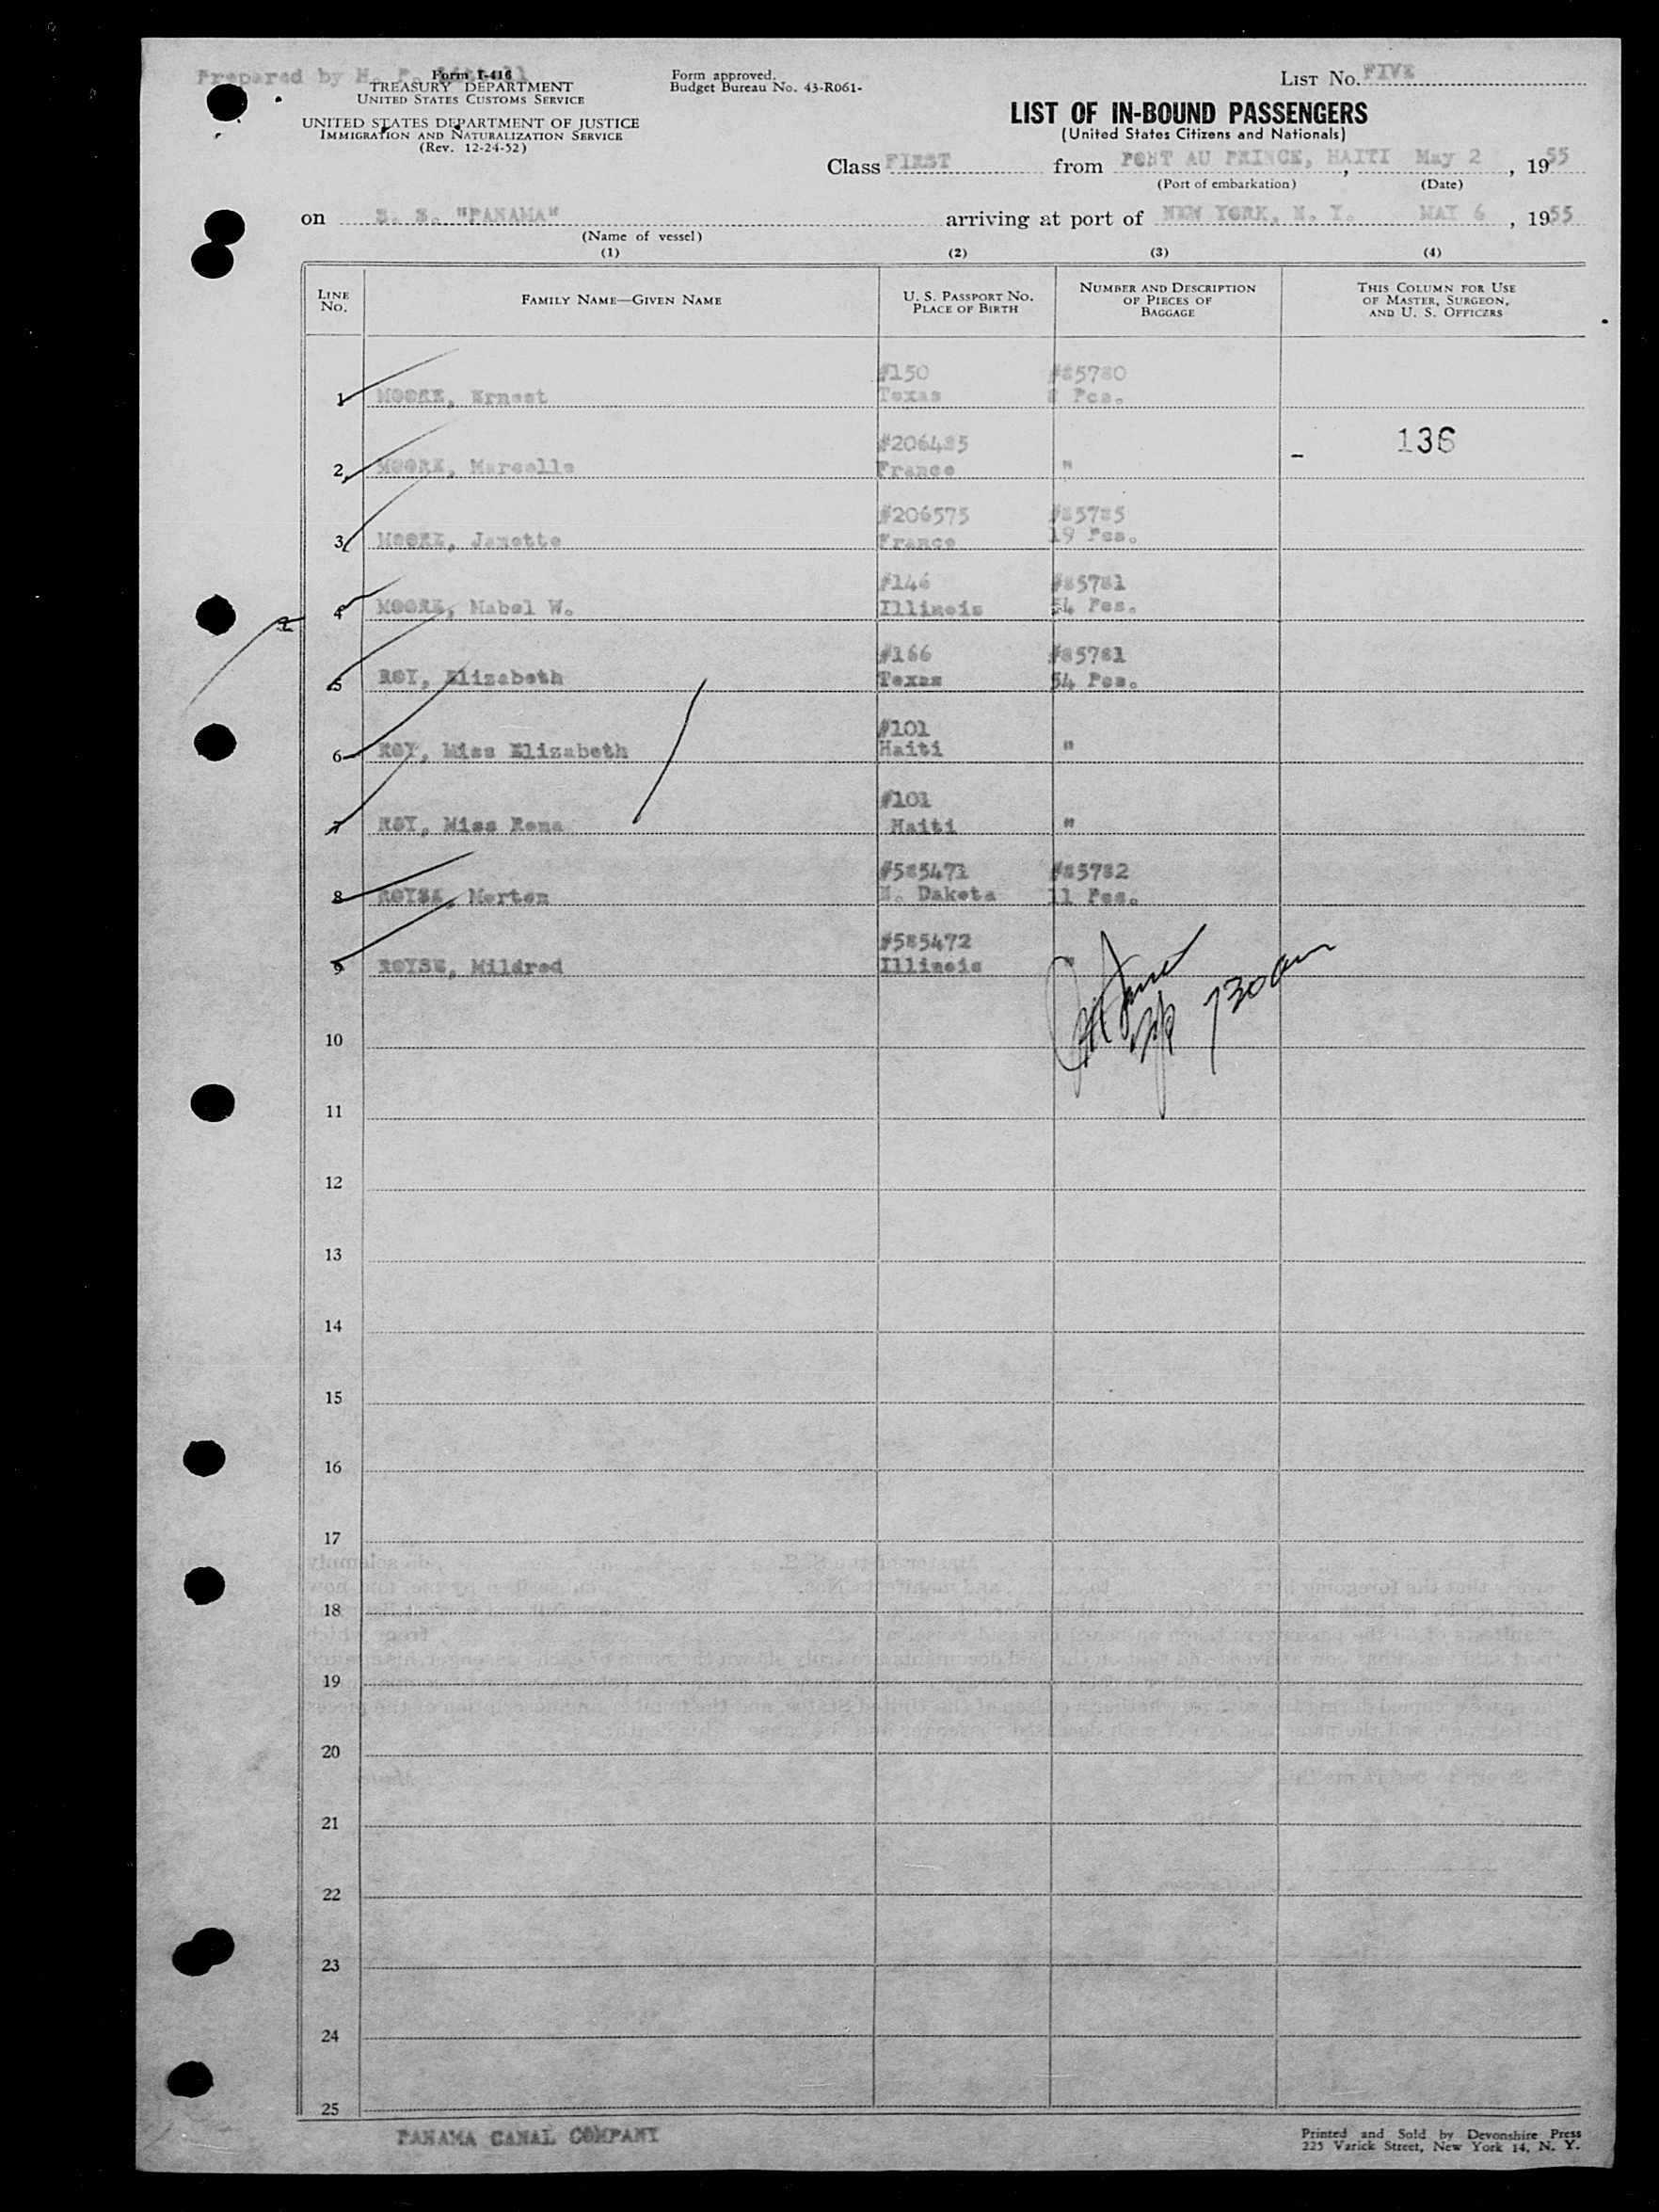 Prepared by H. F.
Form I-416
TREASURY DEPARTMENT
UNITED STATES CUSTOMS SERVICE
UNITED STATES DEPARTMENT OF JUSTICE
IMMIGRATION AND NATURALIZATION SERVICE
(Rev. 12-24-52)
Form approved.
Budget Bureau No. 43-R061-
LIST No. FIVE
LIST OF IN-BOUND PASSENGERS
(United States Citizens and Nationals)
Class FIRST from PORT AU PRINCE, HAITI, May 2, 1955
(Port of embarkation) (Date)
on S. S. "PANAMA" arriving at port of NEW YORK, N. Y. MAY 6, 1955
(Name of vessel)
(1) (2) (3) (4)
LINE NO. FAMILY NAME—GIVEN NAME U. S. PASSPORT NO. PLACE OF BIRTH NUMBER AND DESCRIPTION OF PIECES OF BAGGAGE THIS COLUMN FOR USE OF MASTER, SURGEON, AND U. S. OFFICERS
#150 #85780
1 MOORE, Ernest Texas Pcs.
#206485 - 136
2 MOORE, Marcelle France "
#206575 #85785
3 MOORE, Janette France 19 Pcs.
#146 #85781
4 MOORE, Mabel W. Illinois 54 Pcs.
#166 #85781
5 ROY, Elizabeth Texas 54 Pcs.
#101
6 ROY, Miss Elizabeth Haiti "
#101
7 ROY, Miss Rena Haiti "
#585471 #85782
8 ROYSE, Morton N. Dakota 11 Pcs.
#585472
9 ROYSE, Mildred Illinois "
730 am
10
11
12
13
14
15
16
17
18
19
20
21
22
23
24
25
PANAMA CANAL COMPANY
Printed and Sold by Devonshire Press
225 Varick Street, New York 14, N. Y.